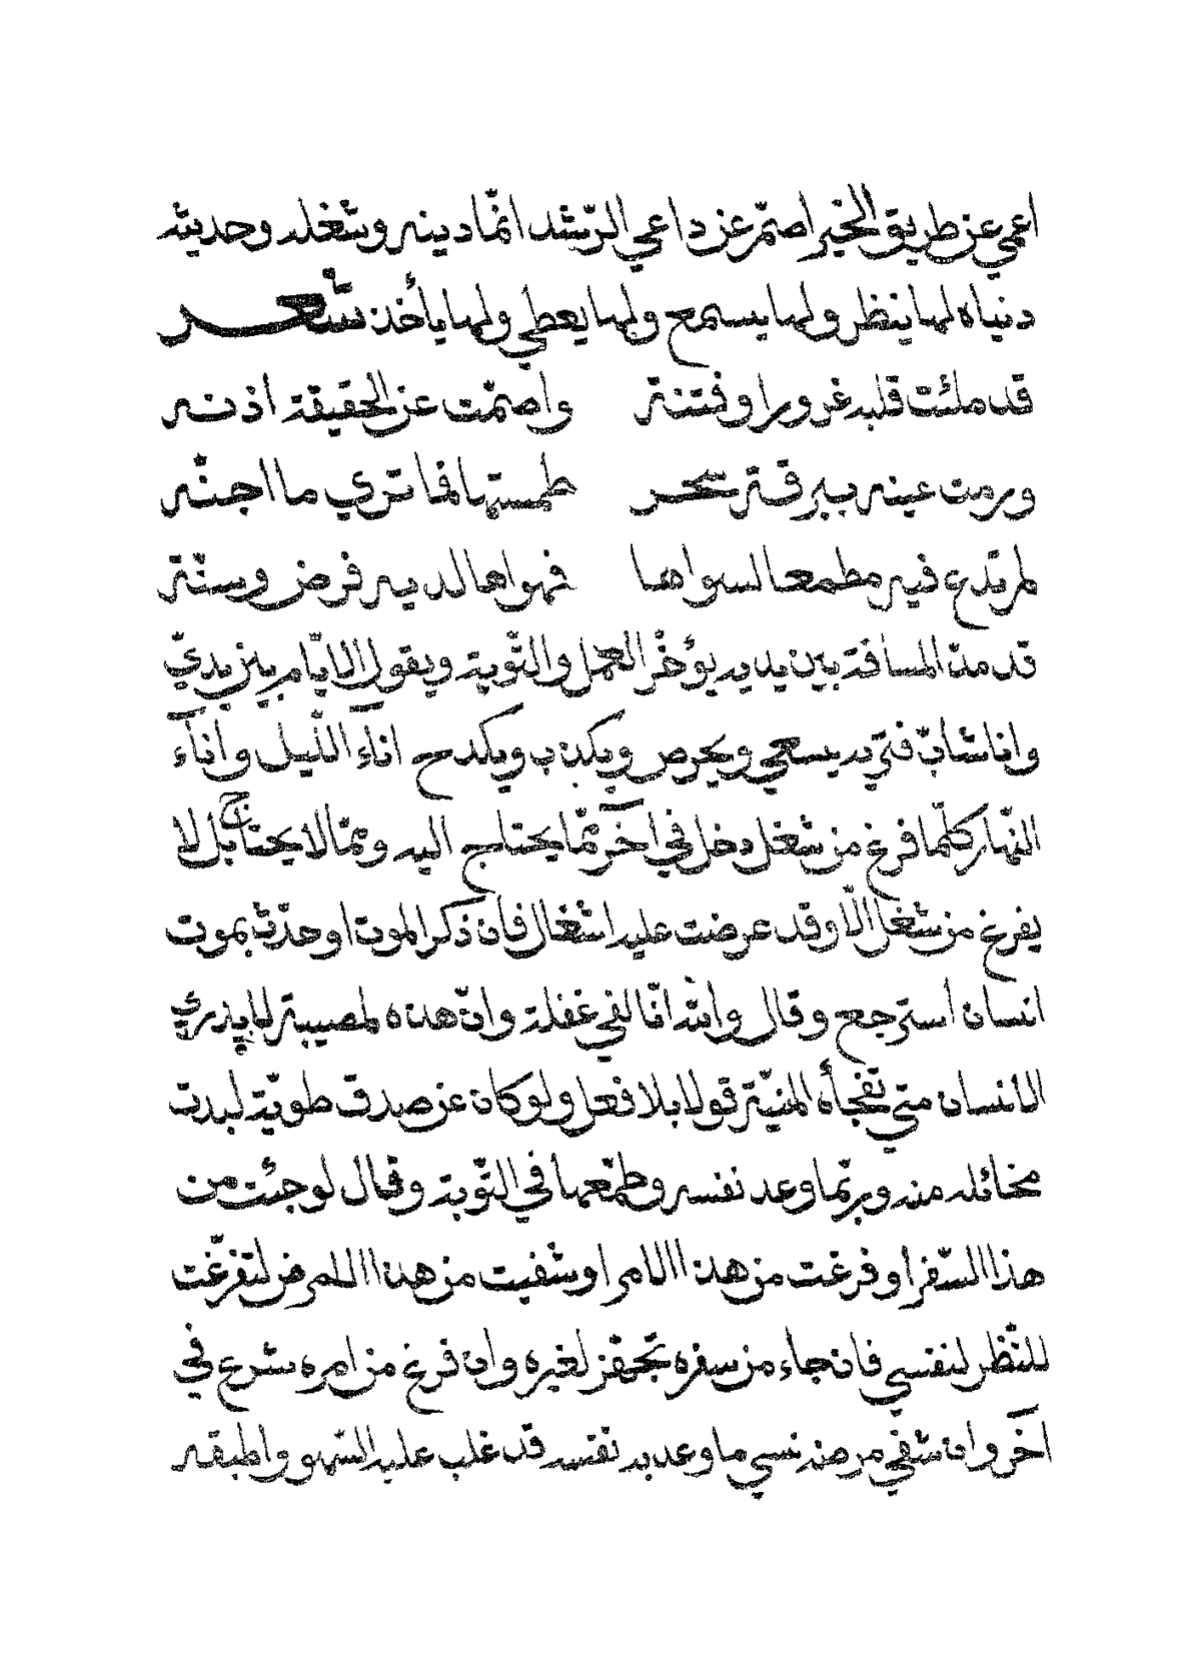 اعمي عن طريق الخير اصمّ عن داعي الرّشد انّما دينه وشغله وحديثه
دنياه لها ينظر ولها يسمع ولها يعطي ولها يأخذ شعر
قد ملئت قلبه غرورا وفتنة واصمّت عن الحقيقة اذنه
ورمت عينه ببرقة سحر طمستها فما تري ما اجنّه
لم تدع فيه مطمعا لسواها فهواها لديه فرض وسنّة
قد مدّ المسافة بين يديه يؤخّر العمل والتّوبة ويقول الايّام بين يديّ
وانا شابّ فتي يسعي ويحرص ويكذب ويكدح اناء اللّيل واناء
النّهار كلّما فرغ من شغل دخل في آخر ممّا يحتاج اليه وممّا لا يحتاج بل لا
يفرغ من شغل الّا وقد عرضت عليه اشغال فان ذكر الموت او حدّث بموت
انسان استرجع وقال والله انّا لفي غفلة وانّ هذه لمصيبة لا يدري
الانسان متي تفجأه المنيّة قولا بلا فعل ولو كان عن صدق طويّة لبدت
مخائله منه وربّما وعد نفسه وطمّعها في التّوبة وقال لو جئت من
هذا السّفر او فرغت من هذا الامر او شفيت من هذا المرض لتفرّغت
للنّظر لنفسي فان جاء من سفره تجهّز لغيره وان فرغ من امره شرع في
آخر وان شفي من مرضه نسي ما وعد به نفسه قد غلب عليه السّهو واطبقه